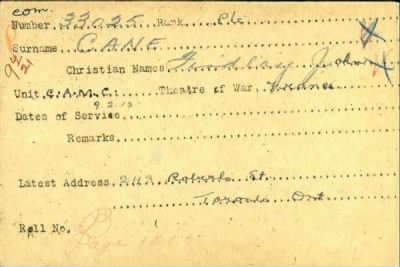 com.
Number 33025 Rank Pte
Surname CANE
92/21
Christian Names Findlay John
Unit C.A.M.C. Theatre of War France
9.2.15
Dates of Service
Remarks
Latest Address 243 Roberts St.
Toronto Ont
Roll No. B
Page